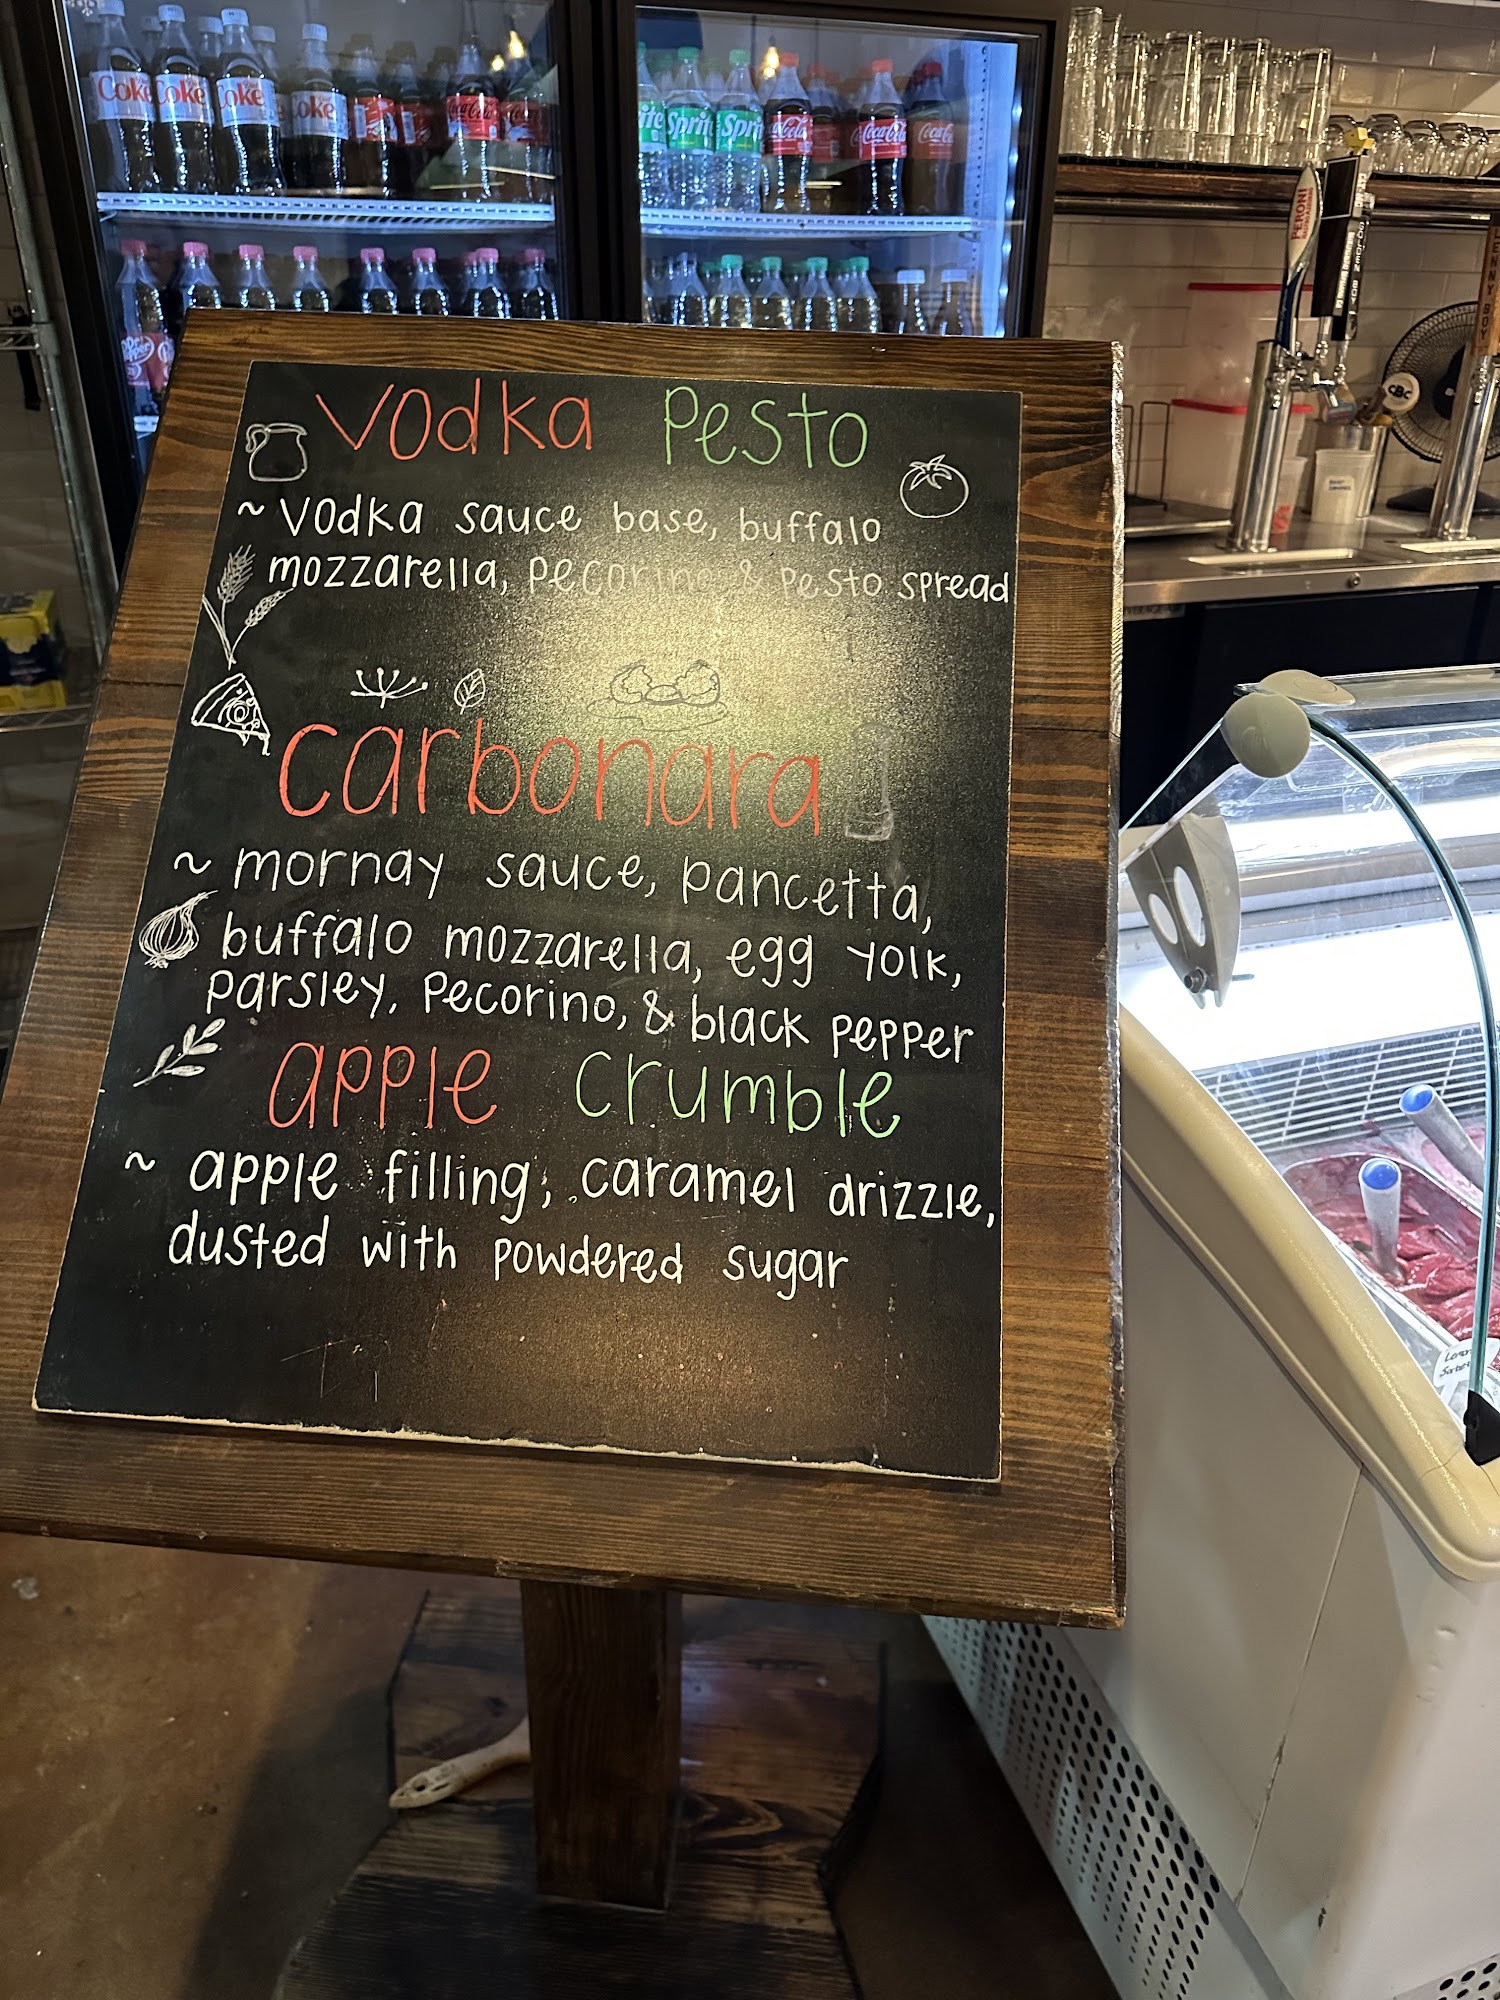 Coke Coke Coke Coke Coca-Cola
Sprite Sprite Coca-Cola Coca-Cola Coca-Cola
Dr Pepper
PERONI
CBC
vodka pesto
~ vodka sauce base, buffalo
mozzarella, pecorino & pesto spread
carbonara
~ mornay sauce, pancetta,
buffalo mozzarella, egg yolk,
parsley, pecorino, & black pepper
apple crumble
~ apple filling, caramel drizzle,
dusted with powdered sugar